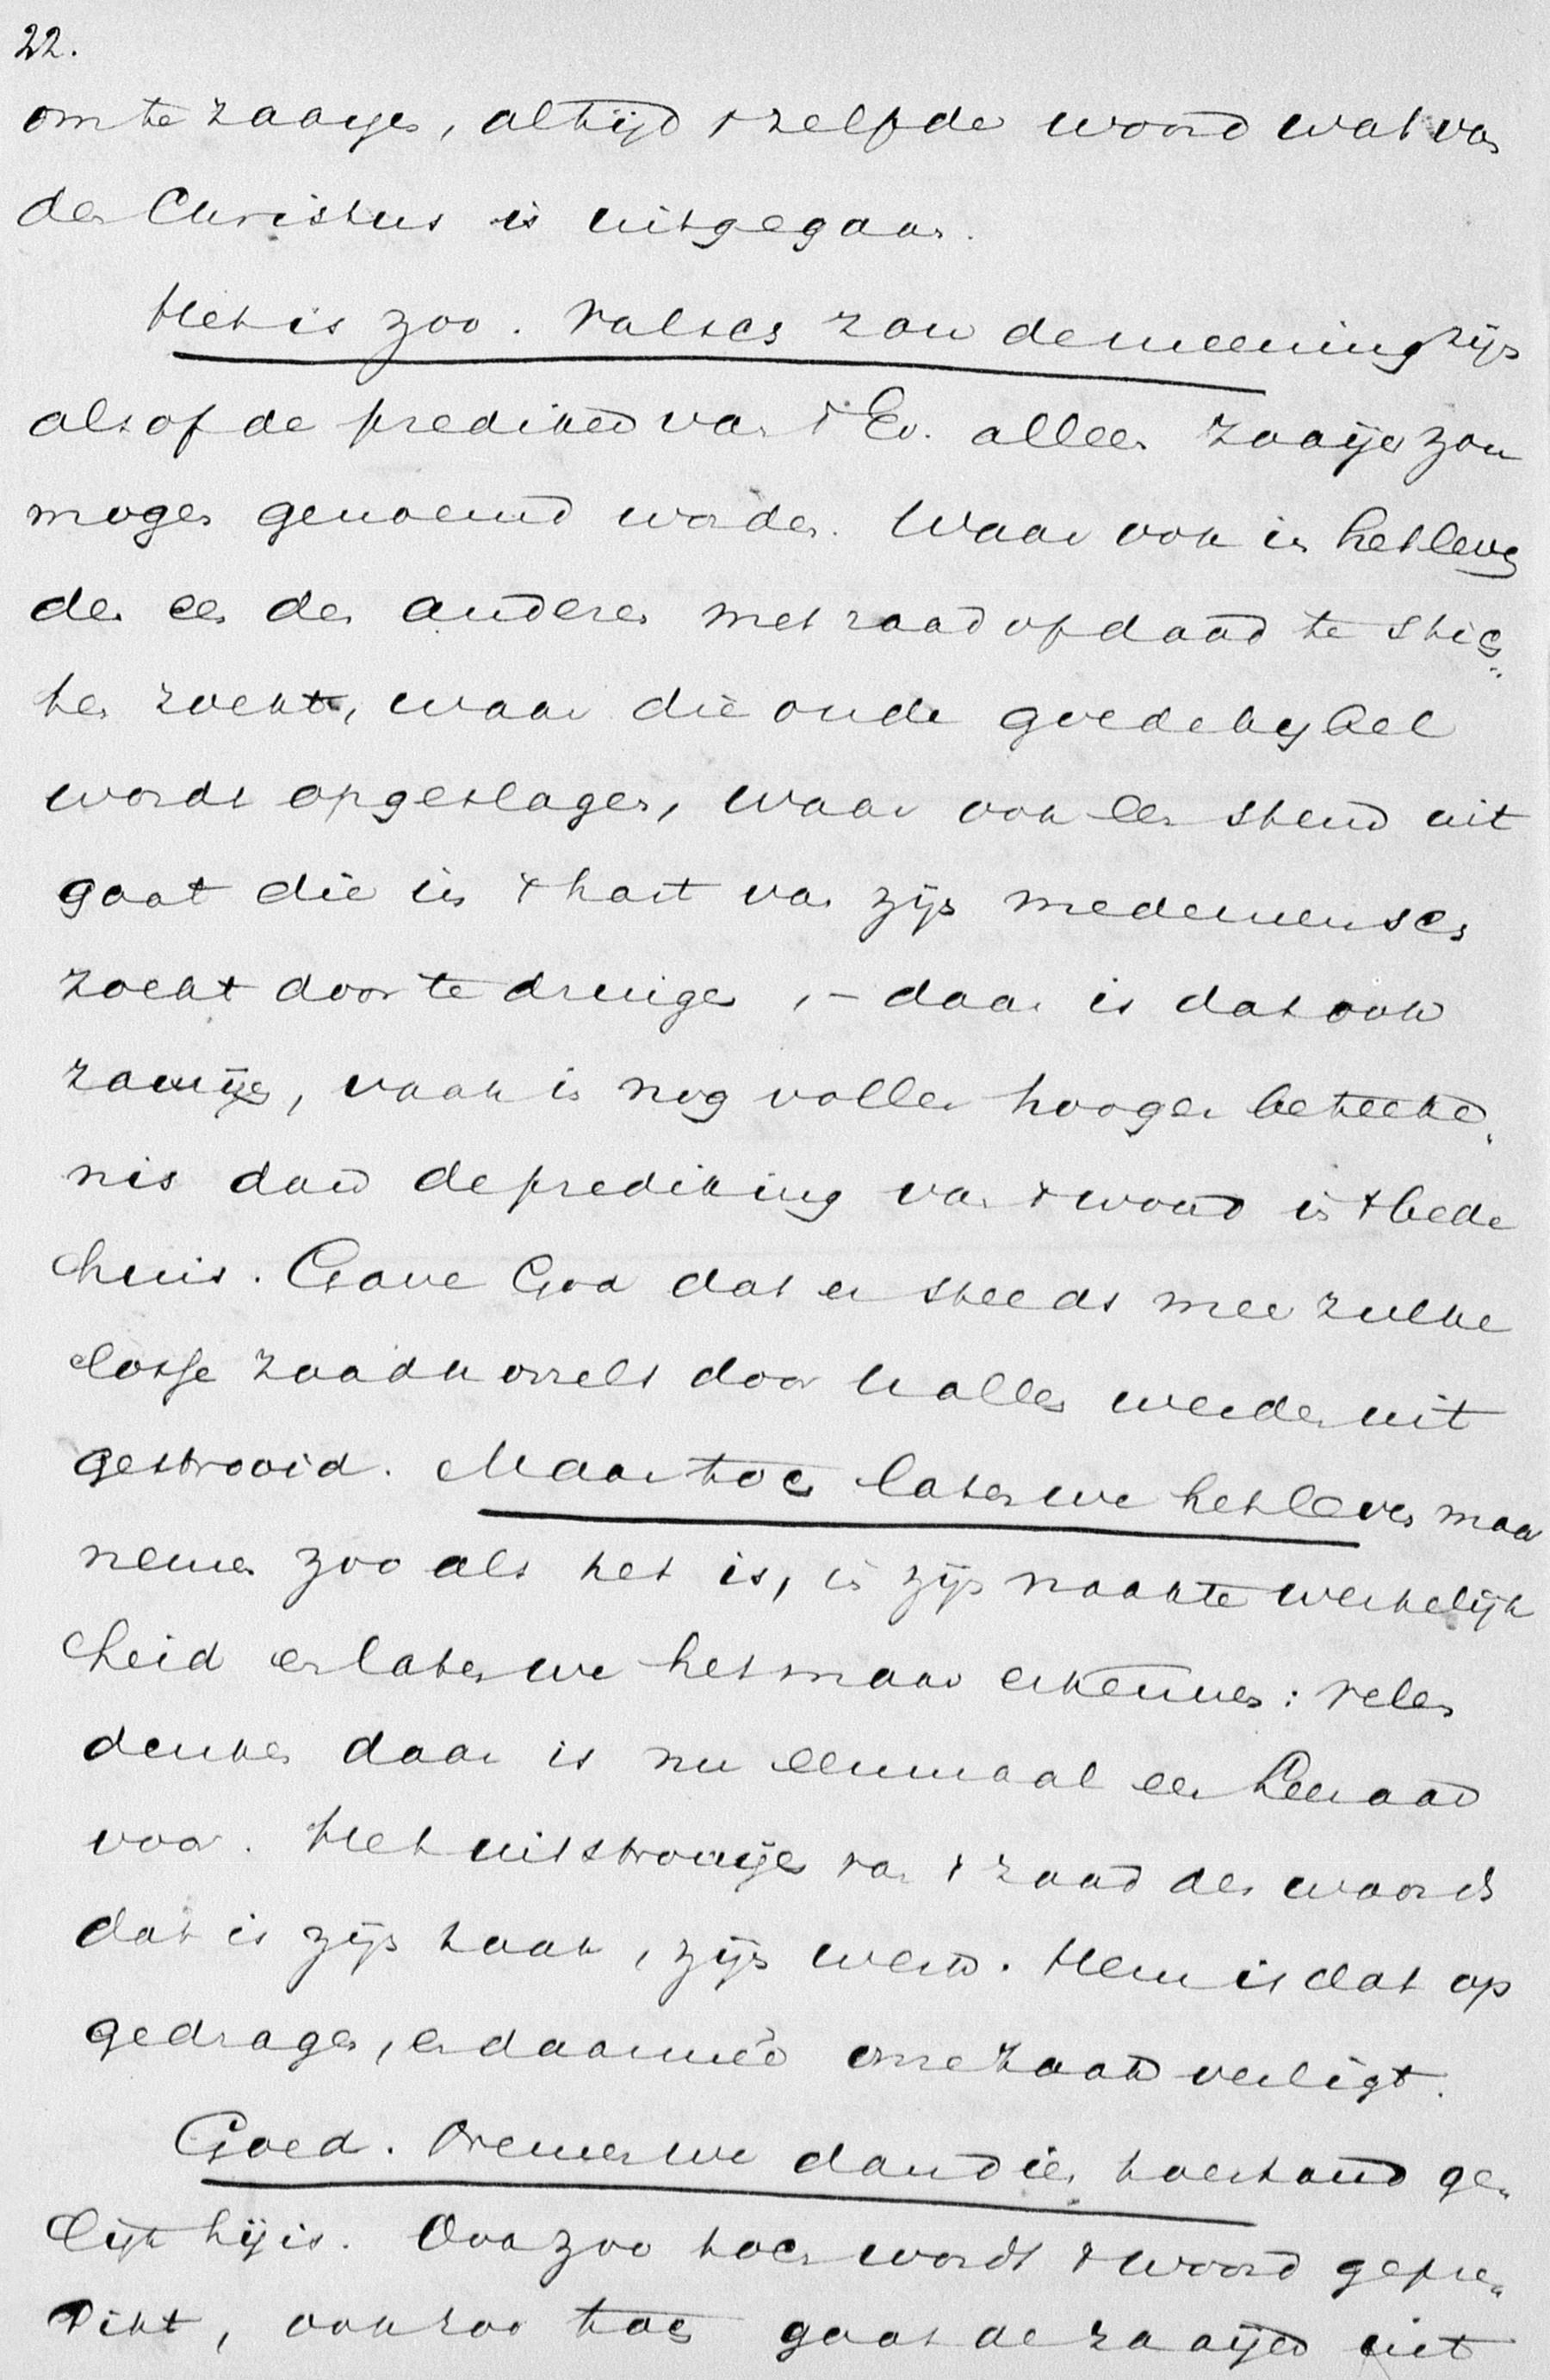 22.
om te zaaijen, altijd 't zelfde woord wat van
den Christus is uitgegaan.
Het is zoo. Valsch zou de meening zijn
alsof de prediker van 't Ev. alleen zaaijer zou
mogen genoemd worden. Waar ook in het leven
de een den anderen met raad of daad te stich„
ten zoekt, waar die oude goede bijbel
wordt opgeslagen, waar ook een stem uit
gaat die in 't hart van zijn medemensch
zoekt door te dringen, – daar is dat ook
zaaijen, vaak in nog voller hooger beteeke„
nis dan de prediking van 't woord in 't bede
huis. Gave God dat er steeds meer zulke
losse zaadkorrels door allen werden uit
gestrooid. Maar toch laten we het leven maar
nemen zoo als het is, in zijn naakte werkelijk
heid en laten we het maar erkennen: velen
denken daar is nu eenmaal een Leeraar
voor. Het uitstrooijen van 't zaad des woords
dat is zijn taak, zijn werk. Hem is dat op
gedragen, en daarmeê onze taak verligt.
Goed. Nemen we dan dien toestand ge„
lijk hij is. Ook zoo toch wordt 't woord gepre„
dikt, ook zoo toch gaat de zaaijer uit